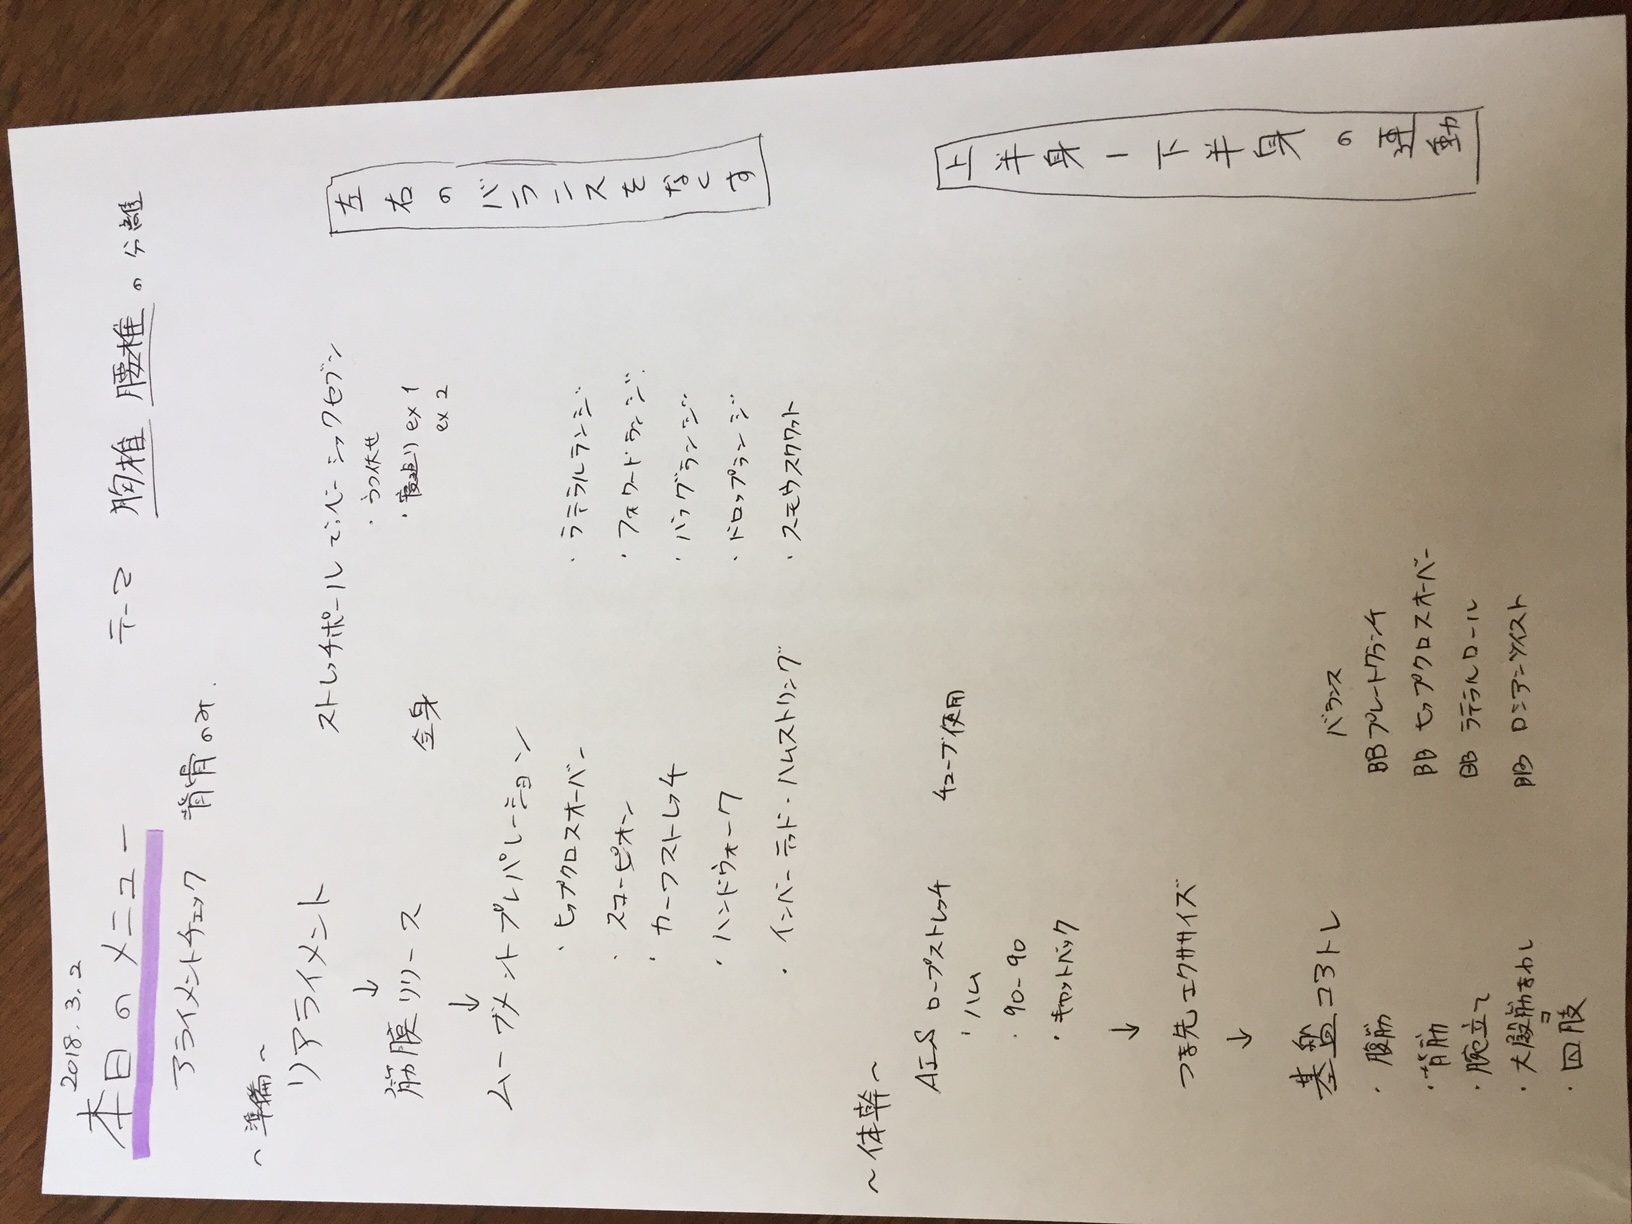 2018.3.2
本日のメニュー テーマ 胸椎 腰椎の分離
アライメントチェック 背骨のみ.
～準備～
リアライメント ストレッチポールでベーシックセブン
・うつ伏せ
・寝返り ex 1
ex 2
左右のバランスをなくす
↓
筋膜リリース 全身
↓
ムーブメントプレパレーション
・ヒップクロスオーバー ・ラテラルランジ
・スコーピオン ・フォワードランジ
・カーフストレッチ ・バックランジ
・ハンドウォーク ・ドロップランジ
・インバーテッド・ハムストリング ・スモウスクワット
～体幹～
上半身ー下半身の連動
AIS ロープストレッチ チューブ使用
・ハム
・90-90
・キャットバック
↓
つま先エクササイズ
↓
基盤コアトレ バランス
・腹筋 BBプレートクランチ
・背筋 BB ヒップクロスオーバー
・腕立て BB ラテラルロール
・大殿筋まわし BB ロシアンツイスト
・四肢